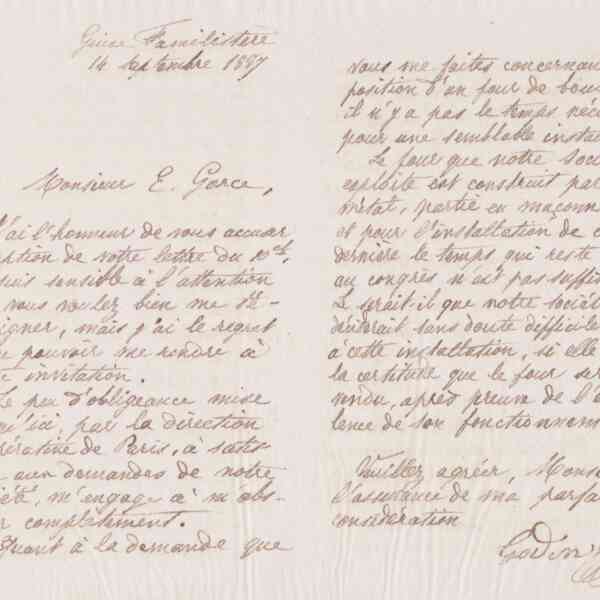 Guise Familistère
14 Septembre 1887
Monsieur E. Gorce,
J'ai l'honneur de vous accuser
ption de votre lettre du 10 ct,
suis sensible à l'attention
vous voulez bien me té-
igner, mais j'ai le regret
e pouvoir me rendre à
e invitation.
Le peu d'obligeance mise
qu'ici, par la direction
pérative de Paris, à satis
aux demandes de notre
iété, m'engage à m'abs-
r complètement.
Quant à la demande que
vous me faites concernan
position d'un four de bou
il n'y a pas le temps néc
pour une semblable instal
Le four que notre Soci
exploite est construit par
métal, partie en maçonn
et pour l'installation de c
dernière le temps qui reste
au congrès n'est pas suffis
Le serait-il que notre Sociét
déciderait sans doute difficile
à cette installation, si elle
la certitude que le four ser
vendu, après preuve de l'e
lence de son fonctionnem
Veuillez agréer, Monsie
l'assurance de ma parfa
considération
Godin